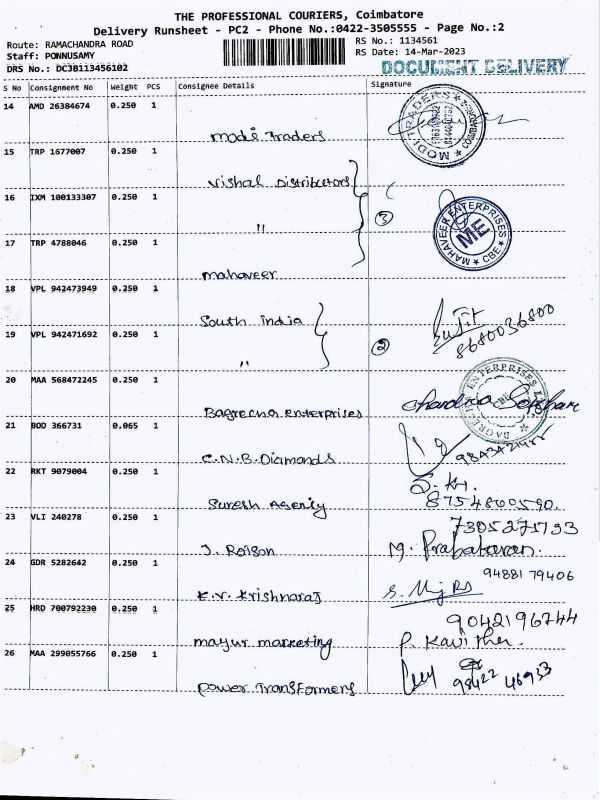 THE PROFESSIONAL COURIERS, Coimbatore
Delivery Runsheet - PC2 - Phone No.:0422-3505555 - Page No.:2
Route: RAMACHANDRA ROAD
RS No.: 1134561
Staff: PONNUSAMY
RS Date: 14-Mar-2023
DRS No.: DCJB113456102
DOCUMENT DELIVERY
S No Consignment No Weight PCS Consignee Details Signature
14 AMD 26384674 0.250 1
Modi Traders
MODI TRADERS * COIMBATORE-2
15 TRP 1677007 0.250 1
Vishal Distributors
16 IXM 100133307 0.250 1
"
3
MAHAVEER ENTERPRISES * CBE *
ME
17 TRP 4788046 0.250 1
mahaveer
18 VPL 942473949 0.250 1
South India
Sujit
8680036800
19 VPL 942471692 0.250 1
"
2
20 MAA 568472245 0.250 1
Bagrecha enterprises
Chandra Sekhar
CBE
21 BOD 366731 0.065 1
C.N.B. Diamonds
22 RKT 9079004 0.250 1
Suresh Agency
S. Kr.
8754800590.
23 VLI 240278 0.250 1
J. Roison
7305271793
M. Prabakaran.
24 GDR 5282642 0.250 1
K.V. Krishnaraj
94881 79406
25 HRD 700792230 0.250 1
mayur marketing
9042196744
P. Kavitha.
26 MAA 299055766 0.250 1
Power Transformers
98422 46933